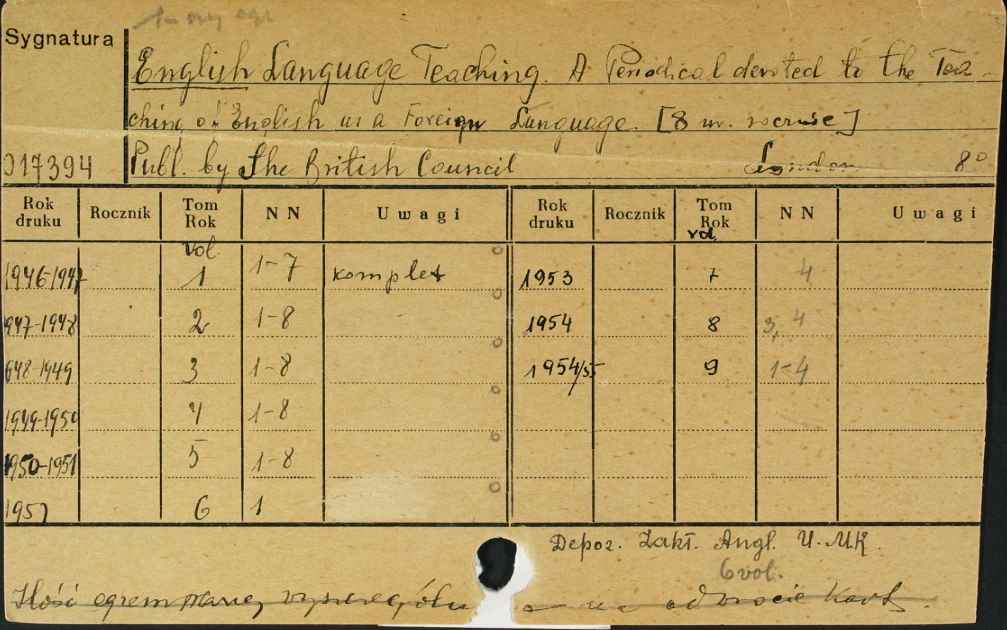 Sygnatura
English Language Teaching. A Periodical devoted to the Tea-
ching of English as a Foreign Language. [8 nr. rocznie]
017394 Publ. by the British Council London 8°
Rok druku Rocznik Tom Rok NN Uwagi Rok druku Rocznik Tom Rok NN Uwagi
vol. vol.
1946-1947 1 1-7 komplet 1953 7 4
947-1948 2 1-8 1954 8 3, 4
948-1949 3 1-8 1954/55 9 1-4
1949-1950 4 1-8
1950-1951 5 1-8
1951 6 1
Depoz. Zakł. Angl. U.M.K.
6 vol.
Ilość egzemplarzy na odwrocie kart.